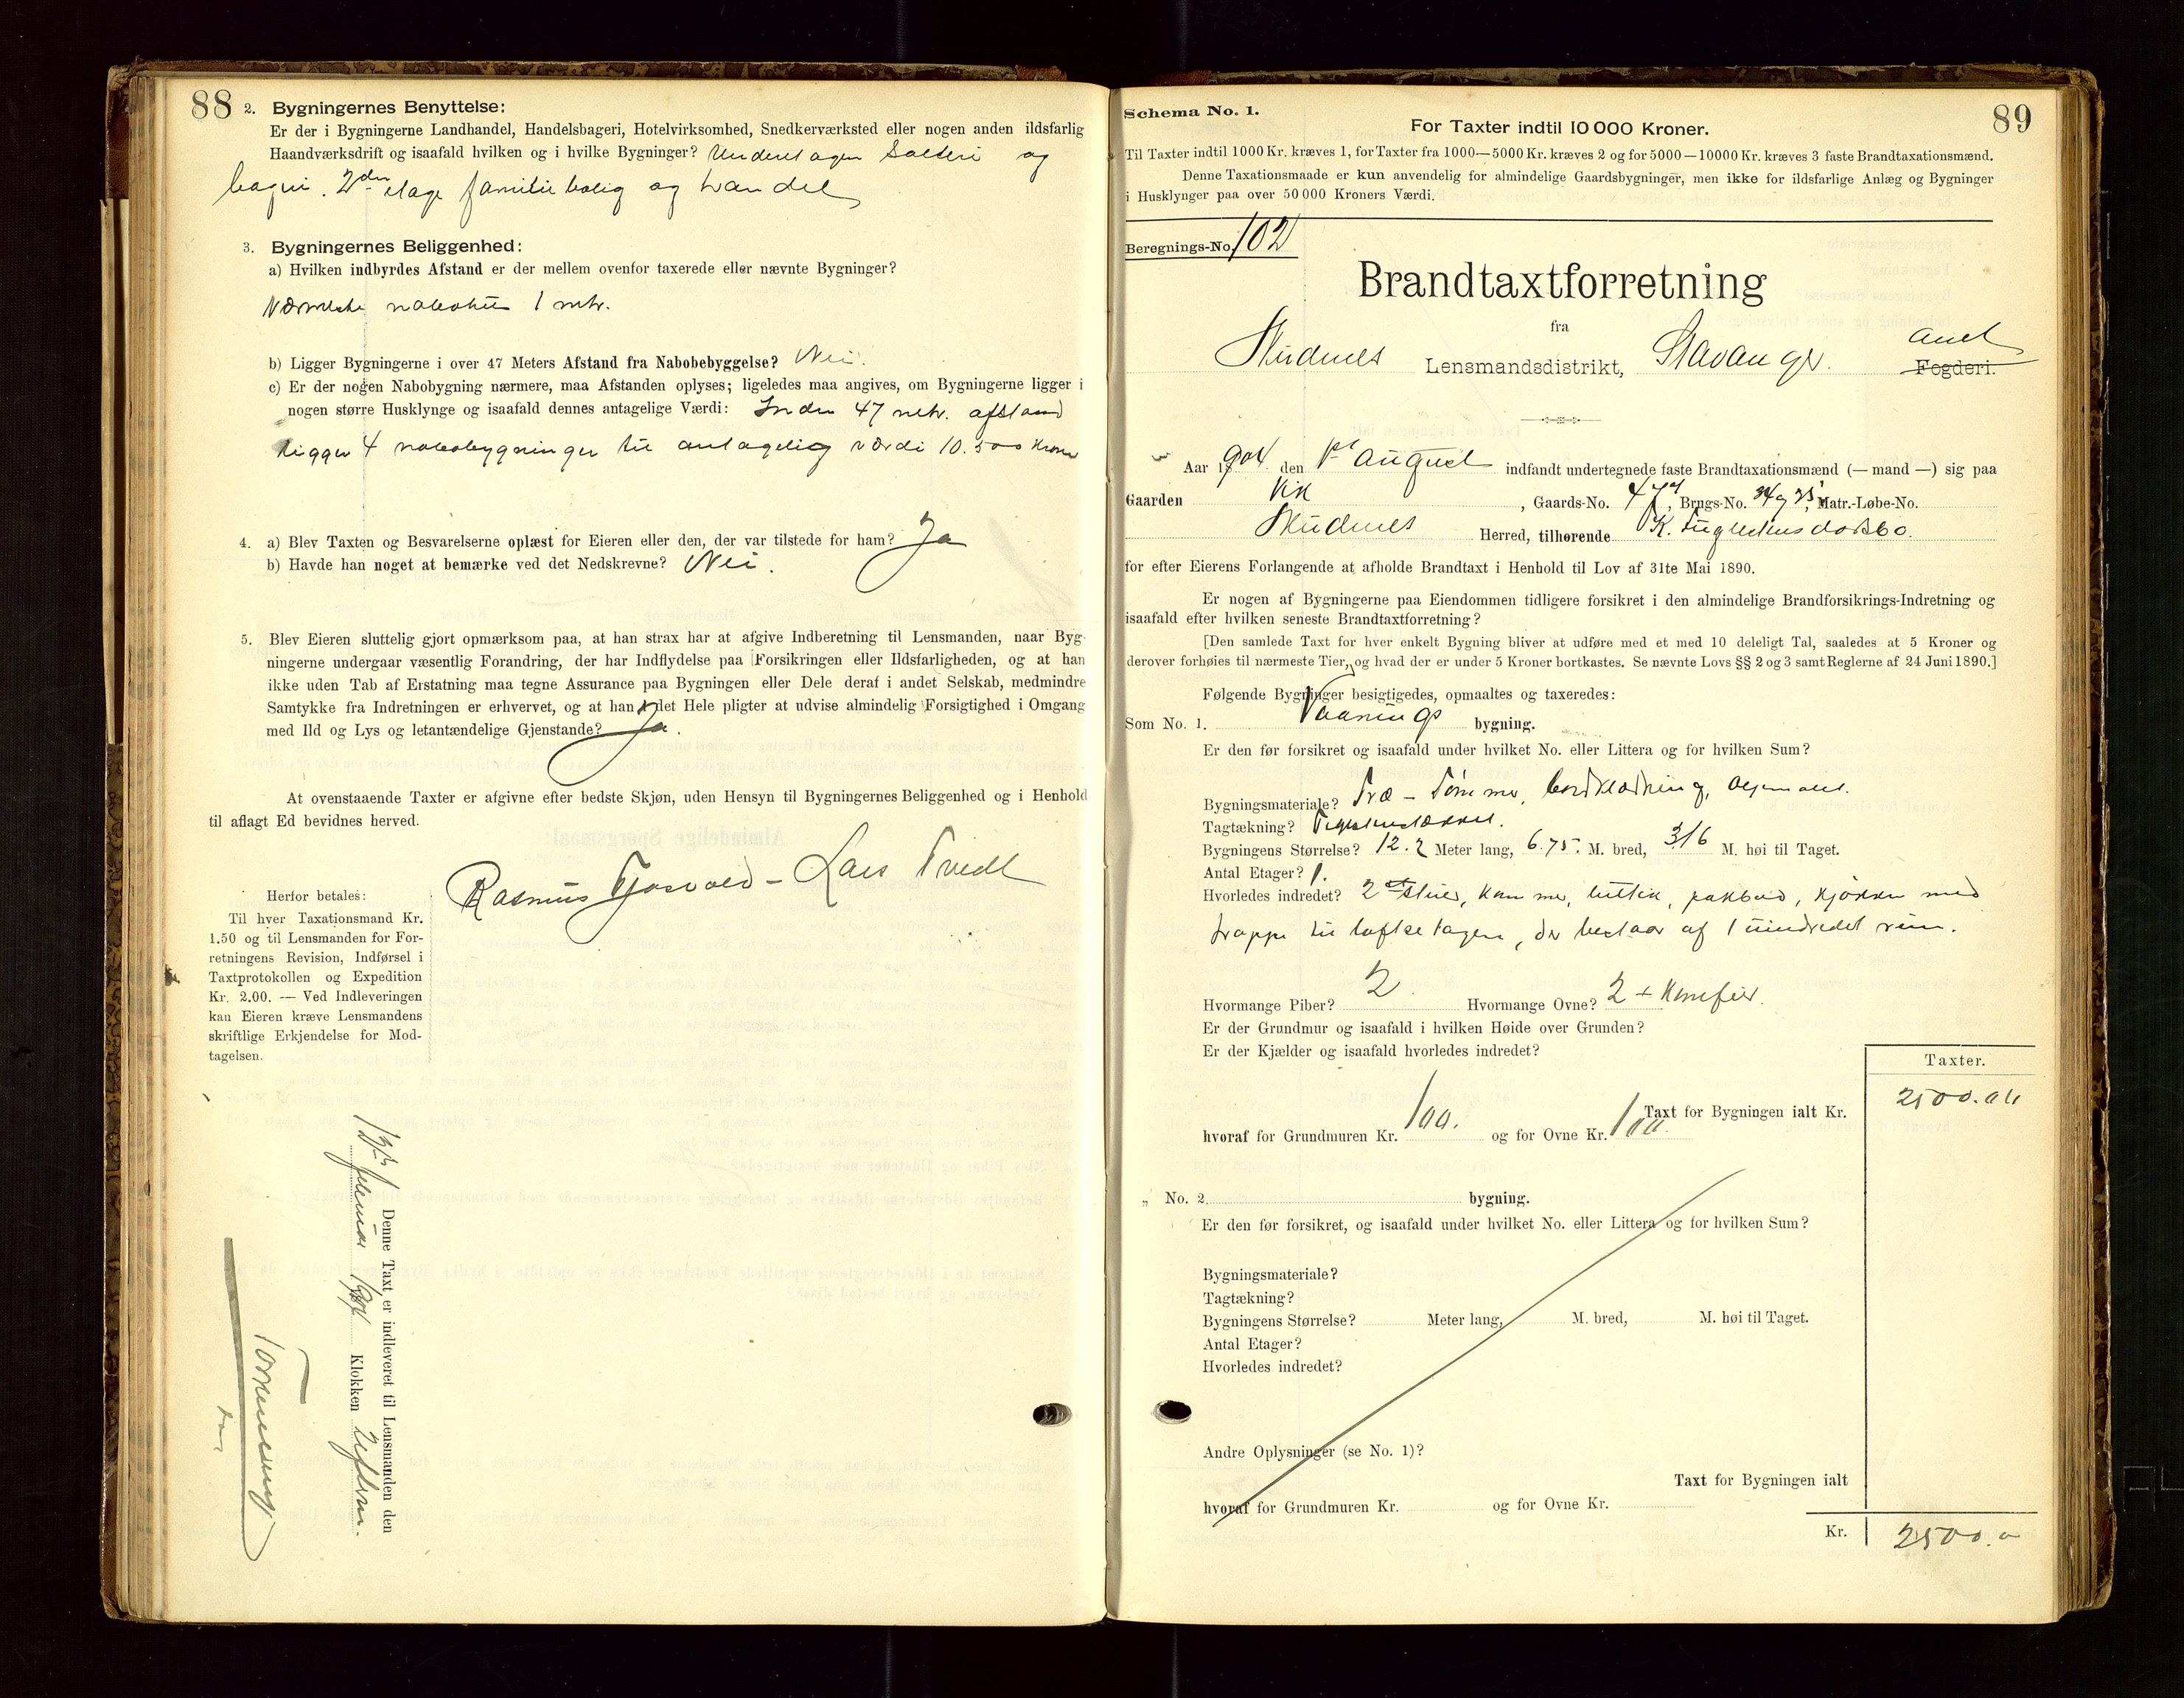 88
2. Bygningernes Benyttelse:
Er der i Bygningerne Landhandel, Handelsbageri, Hotelvirksomhed, Snedkerværksted eller nogen anden ildsfarlig
Haandværksdrift og isaafald hvilken og i hvilke Bygninger? Underetagen Salteri og
bageri. 2den etage familiebolig og handel
3. Bygningernes Beliggenhed:
a) Hvilken indbyrdes Afstand er der mellem ovenfor taxerede eller nævnte Bygninger?
Nærmeste nabohus 1 mtr.
b) Ligger Bygningerne i over 47 Meters Afstand fra Nabobebyggelse? Nei.
c) Er der nogen Nabobygning nærmere, maa Afstanden oplyses; ligeledes maa angives, om Bygningerne ligger i
nogen større Husklynge og isaafald dennes antagelige Værdi: Inden 47 mtr. afstand
ligger 4 nabobygninger til antagelig værdi 10.500 Kroner
4. a) Blev Taxten og Besvarelserne oplæst for Eieren eller den, der var tilstede for ham? Ja
b) Havde han noget at bemærke ved det Nedskrevne? Nei.
5. Blev Eieren sluttelig gjort opmærksom paa, at han strax har at afgive Indberetning til Lensmanden, naar Byg-
ningerne undergaar væsentlig Forandring, der har Indflydelse paa Forsikringen eller Ildsfarligheden, og at han
ikke uden Tab af Erstatning maa tegne Assurance paa Bygningen eller Dele deraf i andet Selskab, medmindre
Samtykke fra Indretningen er erhvervet, og at han i det Hele pligter at udvise almindelig Forsigtighed i Omgang
med Ild og Lys og letantændelige Gjenstande? Ja.
At ovenstaaende Taxter er afgivne efter bedste Skjøn, uden Hensyn til Bygningernes Beliggenhed og i Henhold
til aflagt Ed bevidnes herved.
Rasmus Tjosvold - Lars Tvedt
Herfor betales:
Til hver Taxationsmand Kr.
1.50 og til Lensmanden for For-
retningens Revision, Indførsel i
Taxtprotokollen og Expedition
Kr. 2.00. — Ved Indleveringen
kan Eieren kræve Lensmandens
skriftlige Erkjendelse for Mod-
tagelsen.
Denne Taxt er indleveret til Lensmanden den
Klokken
89
Schema No. 1.
For Taxter indtil 10 000 Kroner.
Til Taxter indtil 1000 Kr. kræves 1, for Taxter fra 1000—5000 Kr. kræves 2 og for 5000—10000 Kr. kræves 3 faste Brandtaxationsmænd.
Denne Taxationsmaade er kun anvendelig for almindelige Gaardsbygninger, men ikke for ildsfarlige Anlæg og Bygninger
i Husklynger paa over 50 000 Kroners Værdi.
Beregnings-No. 102
Brandtaxtforretning
fra
Skudenes Lensmandsdistrikt, Stavanger Amt Fogderi.
Aar 1904 den 1st August indfandt undertegnede faste Brandtaxationsmænd (— mand —) sig paa
Gaarden Vik, Gaards-No. 47, Brugs-No. 34 og 35, Matr.-Løbe-No.
Skudenes Herred, tilhørende K.
for efter Eierens Forlangende at afholde Brandtaxt i Henhold til Lov af 31te Mai 1890.
Er nogen af Bygningerne paa Eiendommen tidligere forsikret i den almindelige Brandforsikrings-Indretning og
isaafald efter hvilken seneste Brandtaxtforretning?
[Den samlede Taxt for hver enkelt Bygning bliver at udføre med et med 10 deleligt Tal, saaledes at 5 Kroner og
derover forhøies til nærmeste Tier, og hvad der er under 5 Kroner bortkastes. Se nævnte Lovs §§ 2 og 3 samt Reglerne af 24 Juni 1890.]
Følgende Bygninger besigtigedes, opmaaltes og taxeredes:
Som No. 1. Vaanings bygning.
Er den før forsikret og isaafald under hvilket No. eller Littera og for hvilken Sum?
Bygningsmateriale? Træ - Tømmer, bordklædning, oljemalet.
Tagtækning? Teglstenstækket.
Bygningens Størrelse? 12.2 Meter lang, 6.75. M. bred, 3/6 M. høi til Taget.
Antal Etager? 1.
Hvorledes indredet? 2 stuer, kammer, buttik, pakbod, kjøkken med
trappe til loftsetagen, der bestaar af 1 uindredet rum.
Hvormange Piber? 2. Hvormange Ovne? 2 + Komfeier.
Er der Grundmur og isaafald i hvilken Høide over Grunden?
Er der Kjælder og isaafald hvorledes indredet?
Taxter.
Taxt for Bygningen ialt Kr. 2500.00
hvoraf for Grundmuren Kr. 100. og for Ovne Kr. 100.
„ No. 2. bygning.
Er den før forsikret, og isaafald under hvilket No. eller Littera og for hvilken Sum?
Bygningsmateriale?
Tagtækning?
Bygningens Størrelse? Meter lang, M. bred, M. høi til Taget.
Antal Etager?
Hvorledes indredet?
Andre Oplysninger (se No. 1)?
Taxt for Bygningen ialt
hvoraf for Grundmuren Kr. og for Ovne Kr.
Kr. 2500.00